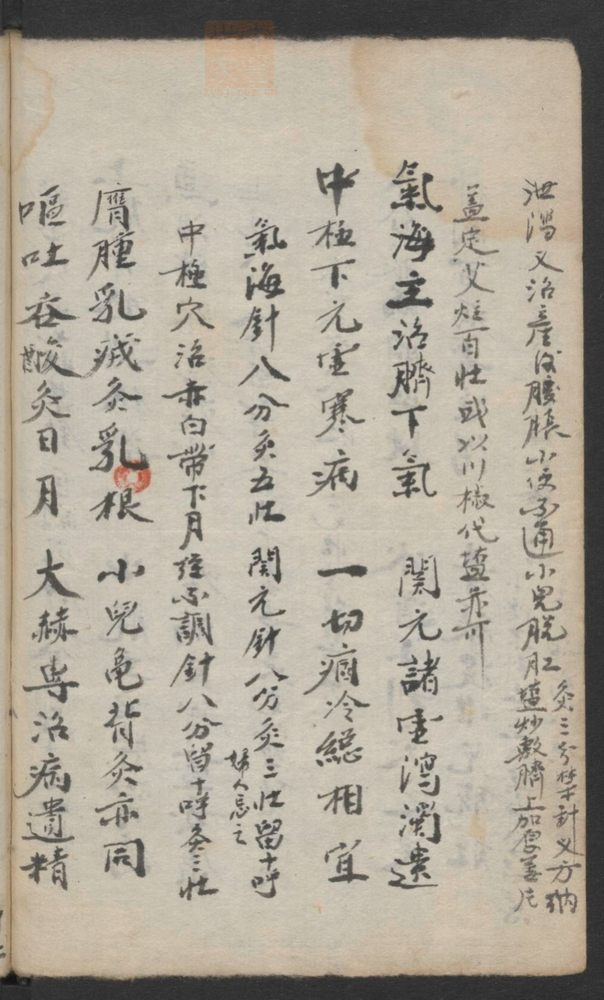 泄瀉又治產後腹脹小便不通小兒脫肛灸三分禁針又方納
鹽炒敷臍上加厚姜片
蓋定艾炷百壯或以川椒代鹽亦可
氣海主治臍下氣　關元諸虛瀉濁遺
中極下元虛寒病　一切痼冷總相宜
氣海針八分灸五壯　關元針八分灸三壯留十呼
婦人忌之
中極穴治赤白帶下月經不調針八分留十呼灸三壯
膺腫乳癰灸乳根　小兒龜背灸亦同
嘔吐吞酸灸日月　大赫專治病遺精